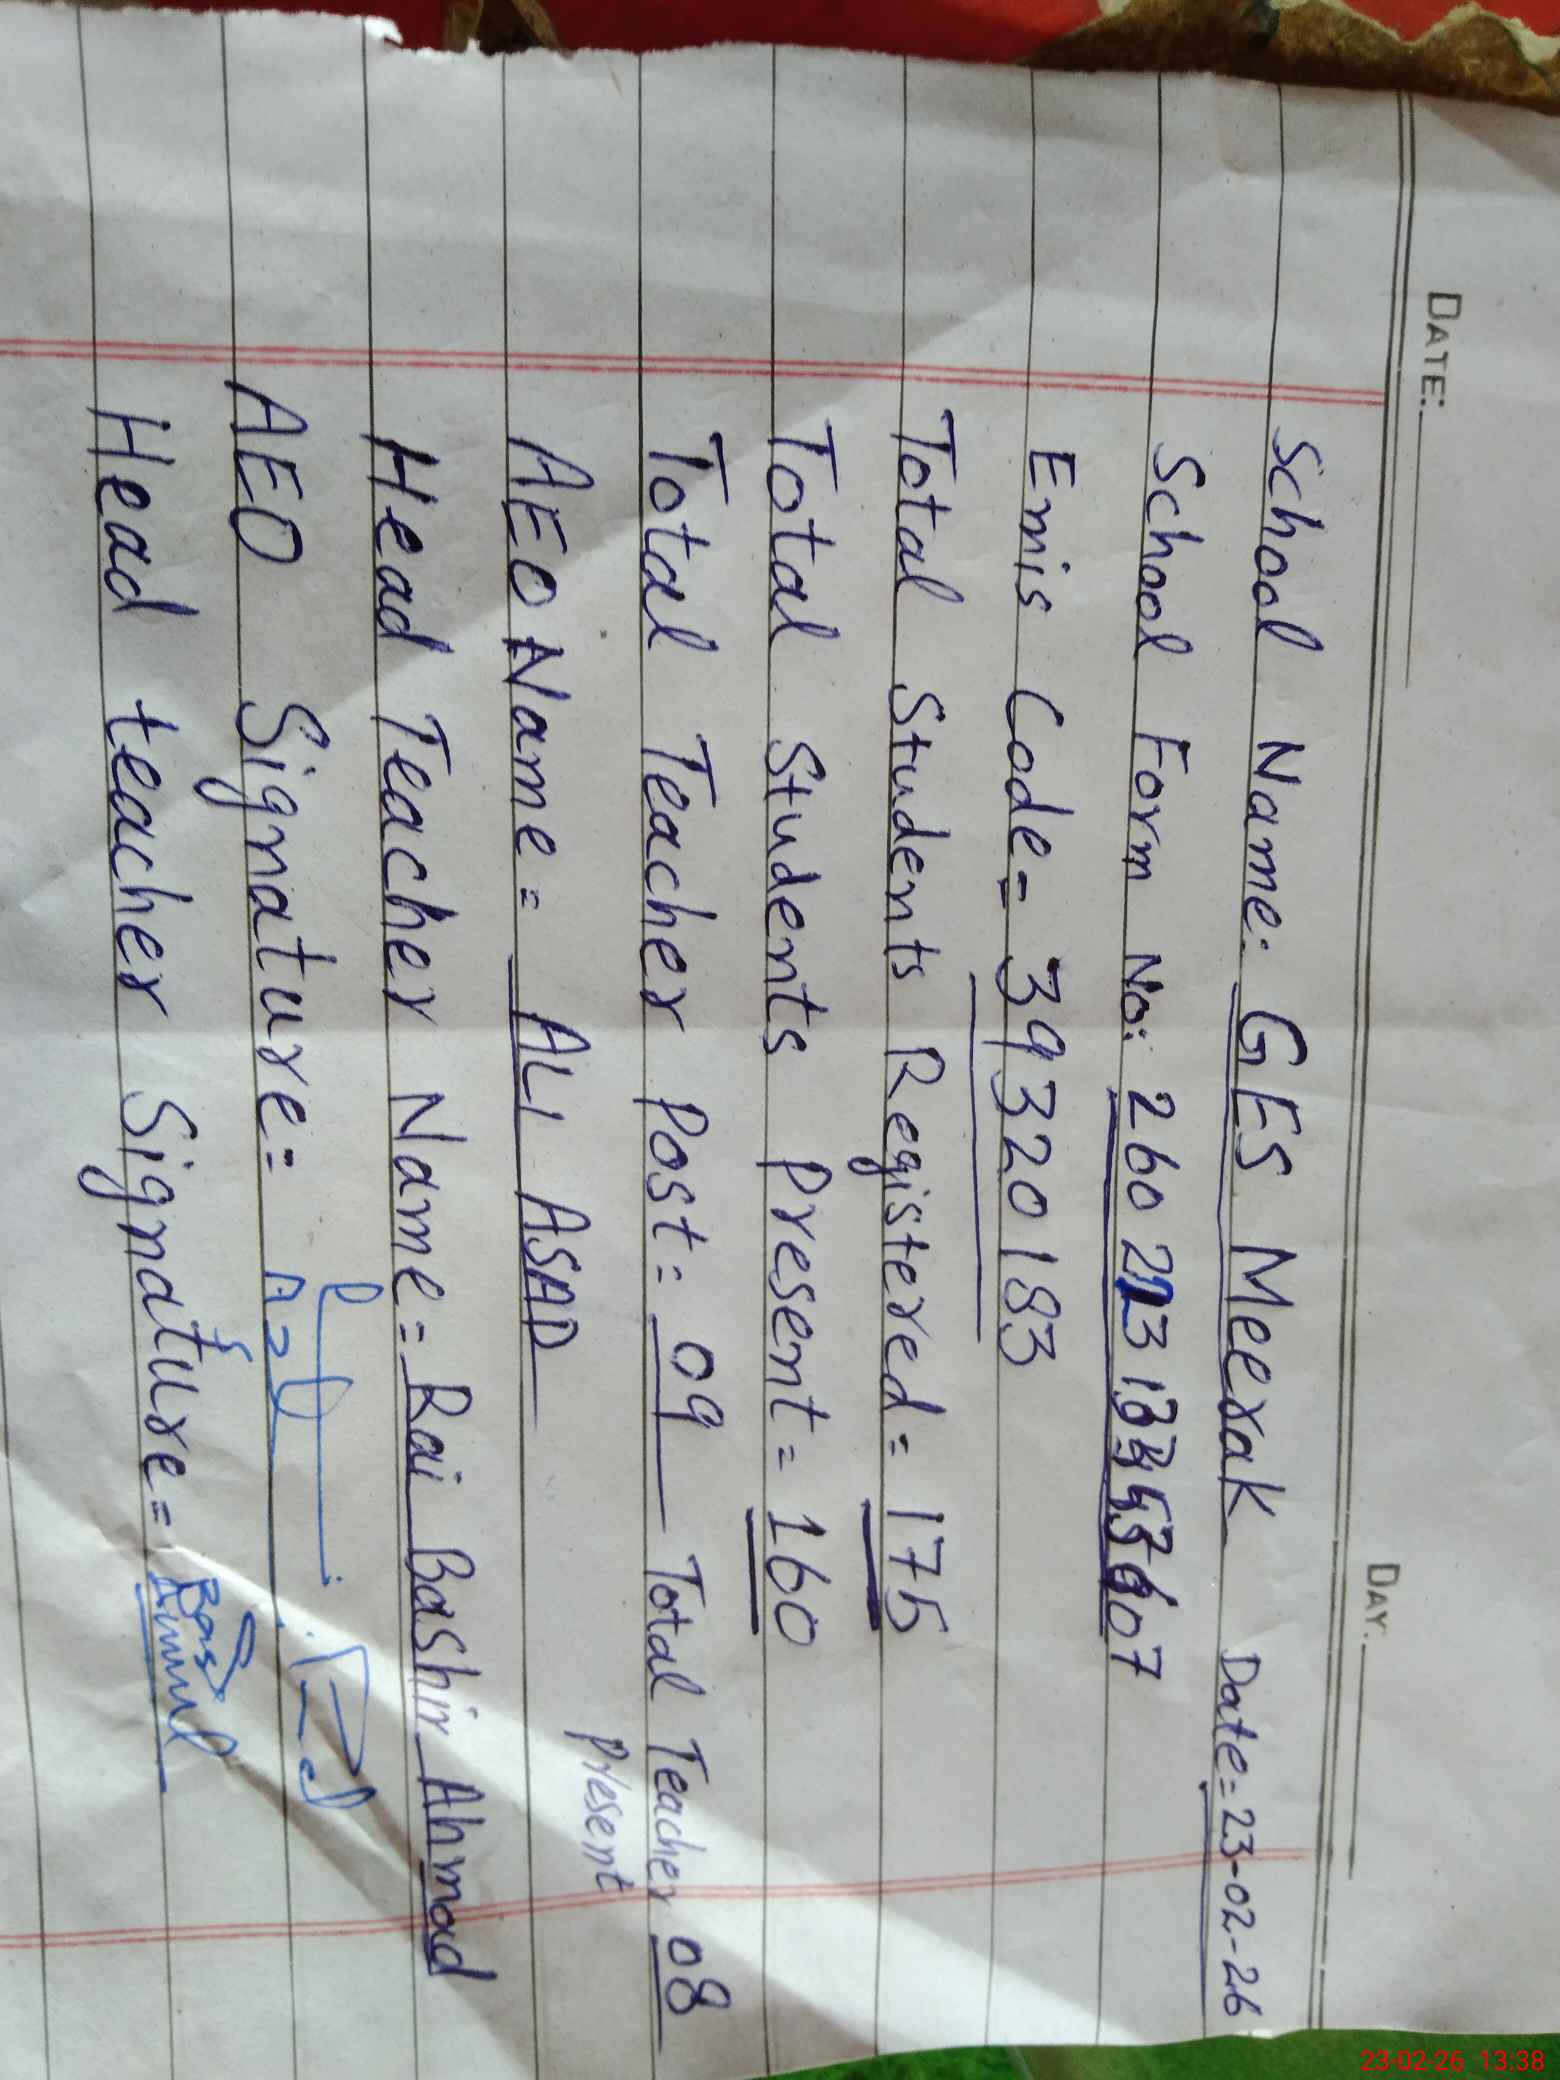 DATE: DAY:
School Name: GES Meerak Date= 23-02-26
School Form No:
Emis Code= 39320183
Total Students Registered= 175
Total Students Present= 160
Total Teacher Post= 09 Total Teacher 08
Present
AEO Name= ALI ASAD
Head Teacher Name= Rai Bashir Ahmad
AEO Signature=
Head teacher Signature=
23-02-26 13:38